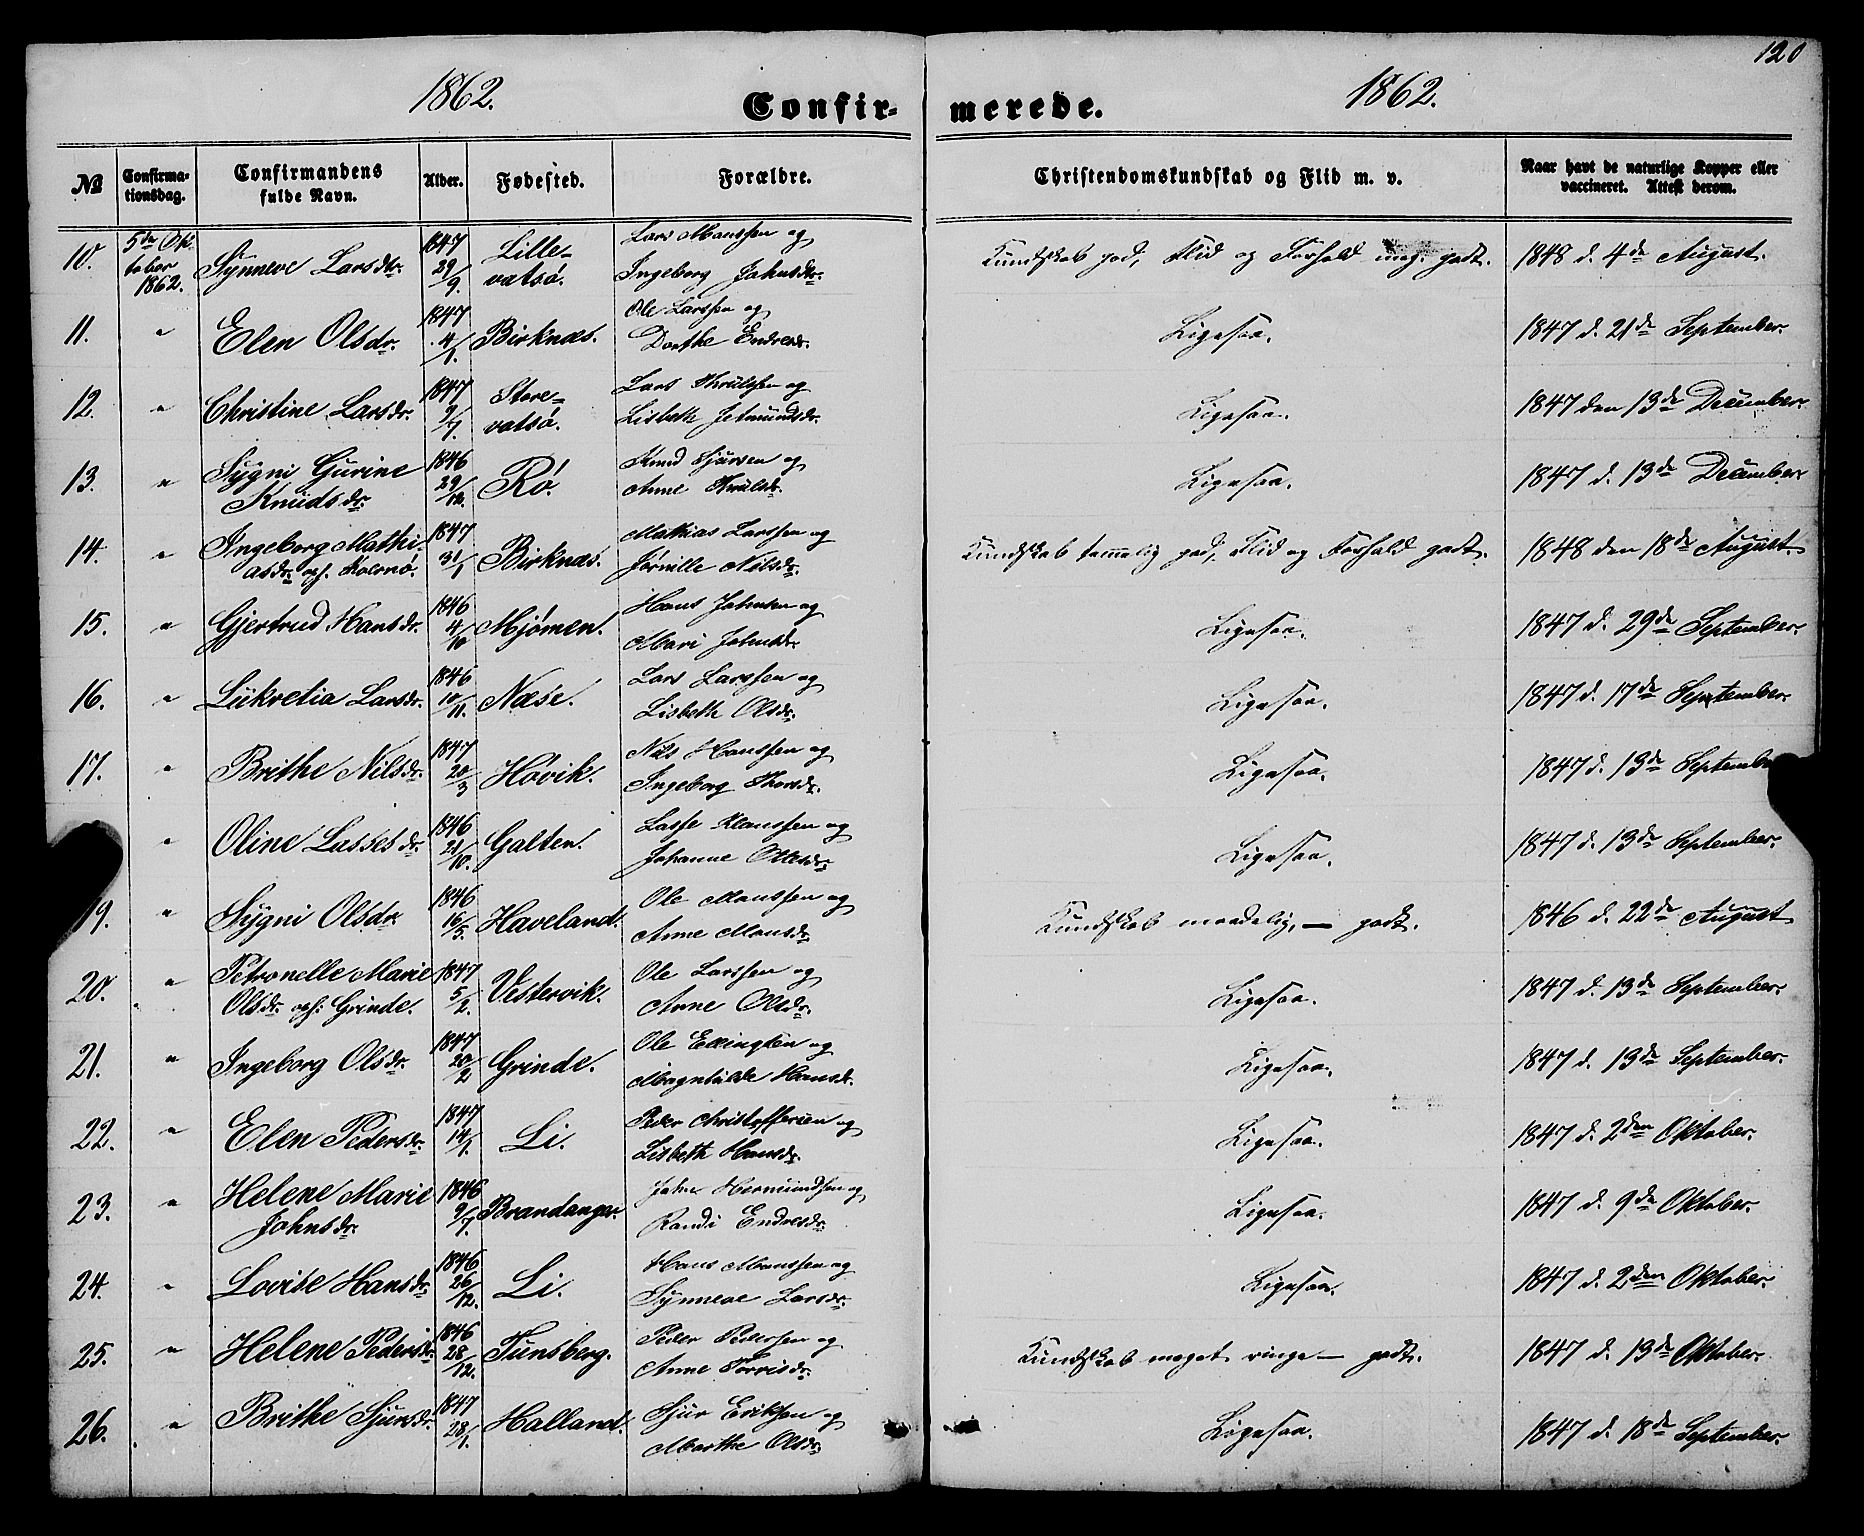 120
1862.
1862.
Confir-
merede.
№
Confirma-
tionsdag.
Confirmandens
fulde Navn.
Alder.
Fødested.
Forældre.
Christendomskundskab og Flid m. v.
Naar havt de naturlige Kopper eller
vaccineret. Attest derom.
10.
5de Ok-
tober
1862.
Synneve Larsdtr.
1847
29/9.
Lille-
vatsö.
Lars Monssen og
Ingeborg Jahnsdtr.
Kundskab god, Flid og Forhold meg. godt.
1848 d. 4de August.
11.
"
Elen Olsdr.
1847
4/1.
Birknæs.
Ole Larssen og
Dorthe Endresdr.
Ligesaa.
1847 d. 21de September.
12.
"
Christine Larsdr.
1847
9/7.
Store-
vatsö.
Lars
og
Lisbeth
Ligesaa.
1847 den 13de December.
13.
"
Sygni Gurine
Knudsdr.
1846
29/12.
Rö.
Knud Sjursen og
Anne
Ligesaa.
1847 d. 13de December.
14.
"
Ingeborg Mathi-
asdr. opf.
1847
31/1
Birknæs.
Mathias Larssen og
Nilsdr.
Kundskab temmelig god, Flid og Forhold godt.
1848 den 18de August
15.
"
Gjertrud Hansdr.
1846
4/10
Mjömen.
Hans Johnsen og
Mari Johnsdr.
Ligesaa.
1847 d. 29de September.
16.
"
Lükretia Larsdr.
1846
10/11.
Næse.
Lars Larssen og
Lisbeth Olsdr.
Ligesaa.
1847 d. 17de September.
17.
"
Brithe Nilsdr.
1847
20/3
Hövik.
Nils Hanssen og
Ingeborg
Ligesaa.
1847 d. 13de Septembe
"
Oline Lassesdr.
1846
21/10.
Galten.
Lasse Klaussen og
Johanne
Ligesaa.
1847 d. 13de September.
19.
"
Sygni Olsdr
1846
16/5.
Haveland.
Ole Monssen og
Anne Monsdr.
Kundskab maadelig, — godt.
1846 d. 22de August
20.
"
Petronelle Marie
Olsdr. opf: Grinde.
1847
5/2.
Vestervik.
Ole Larssen og
Anne Olsdr.
Ligesaa.
1847 d. 13de September.
21.
"
Ingeborg Olsdr.
1847
20/2
Grinde.
Ole
og
Magnhilde Hansdr.
Ligesaa.
1847 d. 13de September.
22.
"
Elen Pedersdr.
1847
14/1.
Li.
Peder Christoffersen og
Lisbeth Hansdr.
Ligesaa.
1847 d. 2den Oktober.
23.
"
Helene Marie
Johnsdr.
1846
9/7.
Brandanger.
John Hermundsen og
Randi Endresdr.
Ligesaa.
1847 d. 9de Oktober.
24.
"
Lovise Hansdr.
1846
26/12.
Li.
Hans Monssen og
Synneve Larsdr.
Ligesaa.
1847 d. 2den Oktober.
25.
"
Helene Pedersdr.
1846
28/12.
Tunsberg.
Peder Pederssen og
Anne Torrisdr.
Kundskab meget ringe — godt.
1847 d. 13de Oktober.
26.
"
Brithe Sjursdr.
1847
28/1.
Halland.
Sjur Eriksen og
Marthe Olsdr.
Ligesaa.
1847 d. 18de September.